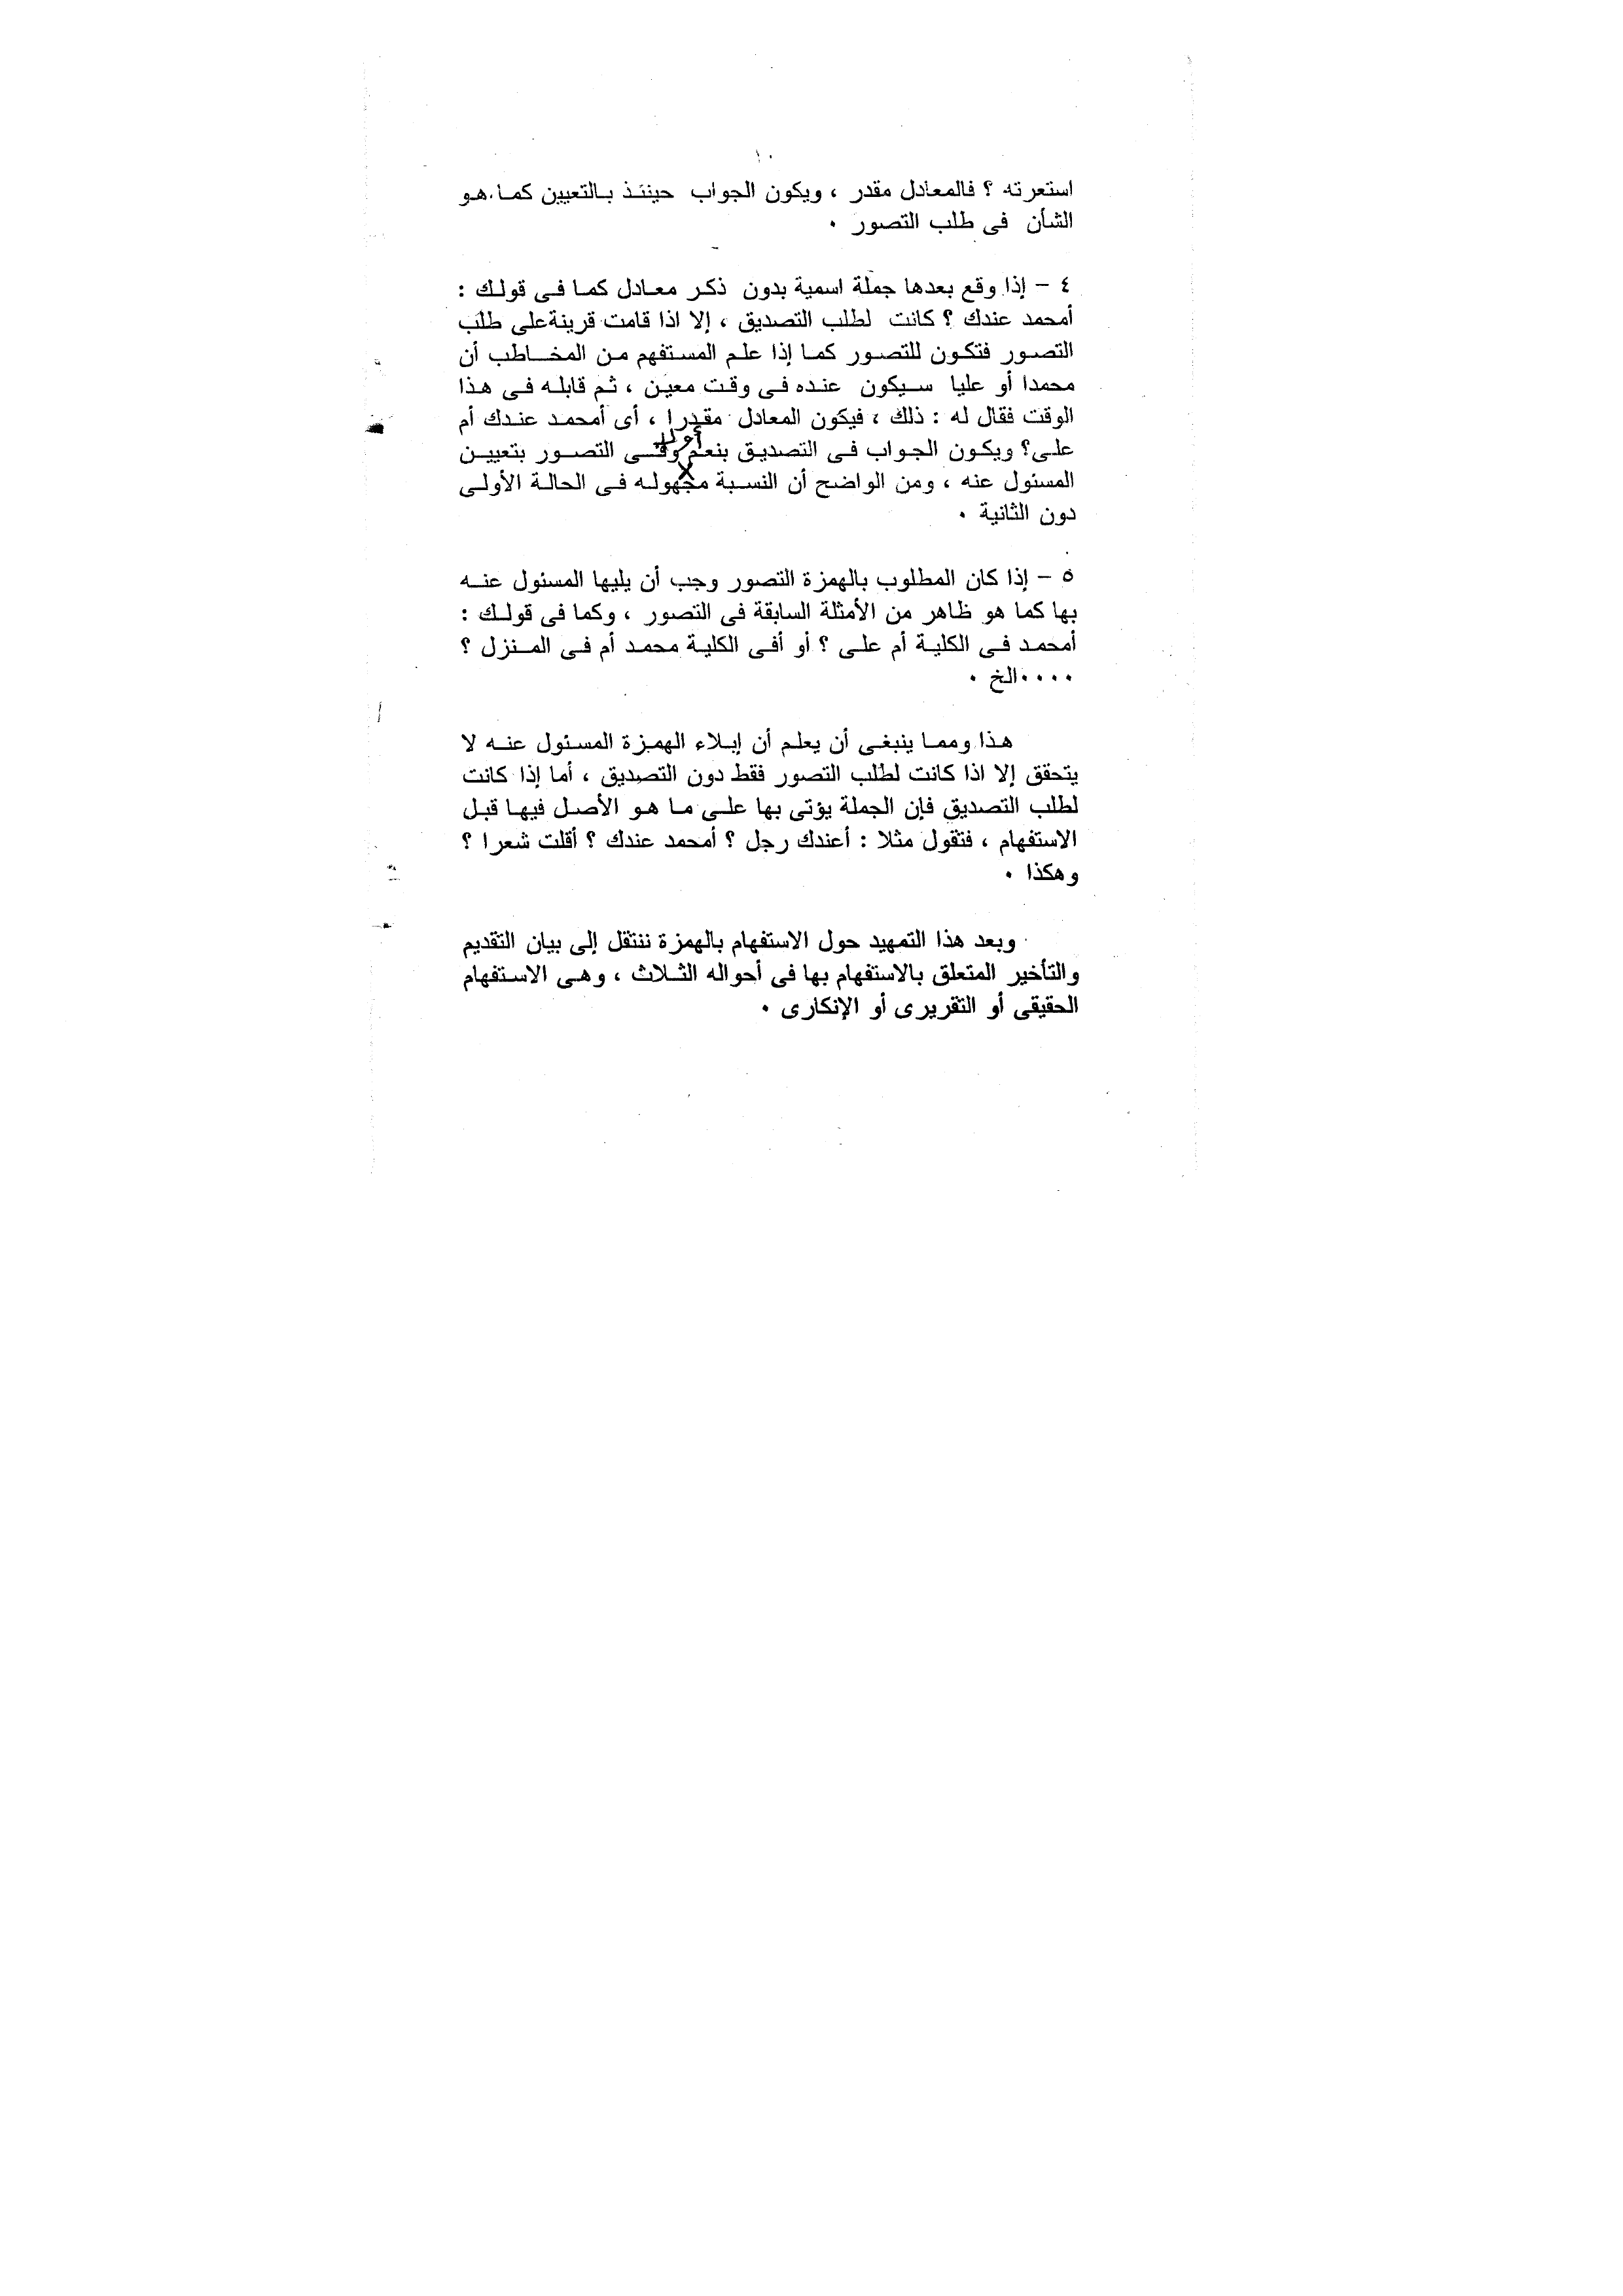 ١٠
استعرته ؟ فالمعادل مقدر ، ويكون الجواب حينئذ بالتعيين كما هو
الشأن فى طلب التصور ٠
٤ – إذا وقع بعدها جملة اسمية بدون ذكر معادل كما فى قولك :
أمحمد عندك ؟ كانت لطلب التصديق ، إلا اذا قامت قرينة على طلب
التصور فتكون للتصور كما إذا علم المستفهم من المخاطب أن
محمدا أو عليا سيكون عنده فى وقت معين ، ثم قابله فى هذا
الوقت فقال له : ذلك ، فيكون المعادل مقدرا ، أى أمحمد عندك أم
على؟ ويكون الجواب فى التصديق بنعم أو لا وفى التصور بتعيين
المسئول عنه ، ومن الواضح أن النسبة مجهوله فى الحالة الأولى
دون الثانية ٠
٥ – إذا كان المطلوب بالهمزة التصور وجب أن يليها المسئول عنه
بها كما هو ظاهر من الأمثلة السابقة فى التصور ، وكما فى قولك :
أمحمد فى الكلية أم على ؟ أو أفى الكلية محمد أم فى المنزل ؟
٠٠٠٠الخ ٠
هذا ومما ينبغى أن يعلم أن إيلاء الهمزة المسئول عنه لا
يتحقق إلا اذا كانت لطلب التصور فقط دون التصديق ، أما إذا كانت
لطلب التصديق فإن الجملة يؤتى بها على ما هو الأصل فيها قبل
الاستفهام ، فتقول مثلا : أعندك رجل ؟ أمحمد عندك ؟ أقلت شعرا ؟
وهكذا ٠
وبعد هذا التمهيد حول الاستفهام بالهمزة ننتقل إلى بيان التقديم
والتأخير المتعلق بالاستفهام بها فى أحواله الثلاث ، وهى الاستفهام
الحقيقى أو التقريرى أو الإنكارى ٠